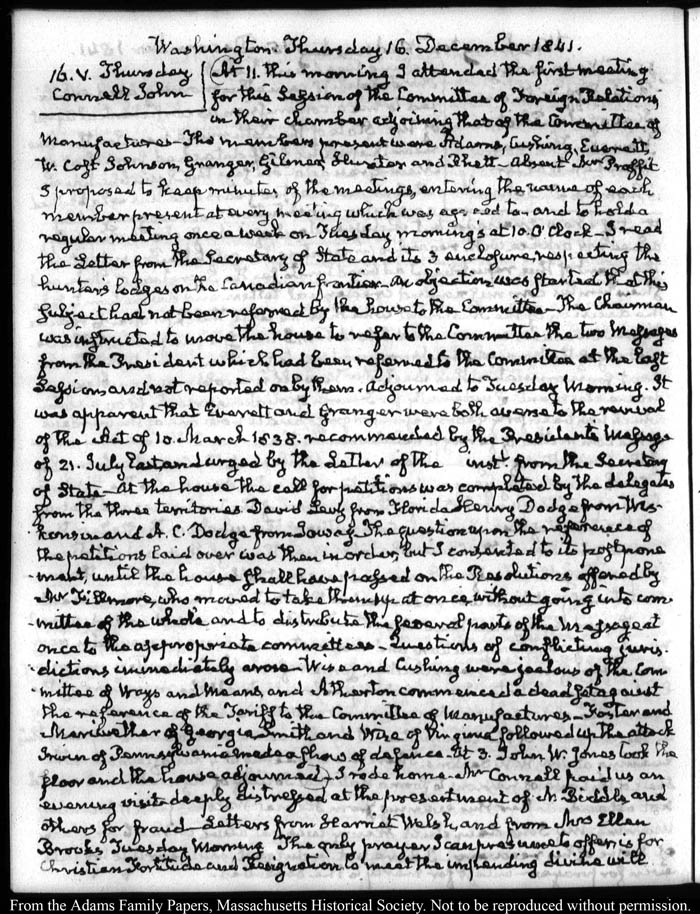 Washington. Thursday 16. December 1841.
16. V. Thursday
Connell John
At 11. this morning I attended the first meeting
for this Session of the Committee of Foreign Relations,
in their chamber adjoining that of the Committee of
Manufactures – The members present were Adams, Cushing, Everett,
W. Cost Johnson, Granger, Gilmer, Hunter and Rhett – Absent Mr Proffit
I proposed to keep minutes of the meetings, entering the name of each
member present at every meeting which was agreed to – and to hold a
regular meeting once a week on Tuesday mornings at 10. O'Clock – I read
the Letter from the Secretary of State and its 3 enclosures, respecting the
hunter's lodges on the Canadian frontier – An objection was started that this
subject had not been referred by the house to the Committee – The Chairman
was instructed to move the house to refer to the Committee the two Messages
from the President which had been referred to the Committee at the last
Session and not reported on by them. Adjourned to Tuesday Morning. It
was apparent that Everett and Granger were both averse to the revival
of the Act of 10. March 1838. recommended by the Presidents Message
of 21. July last and urged by the Letter of the inst.t from the Secretary
of State – At the house the call for petitions was completed by the delegates
from the three territories David Levy from Florida Henry Dodge from Wis-
konsin and A. C. Dodge from Iowa – The question upon the reference of
the petitions laid over was then in order, but I consented to its postpone
ment, until the house shall have passed on the Resolutions offered by
Mr Fillmore, who moved to take them up at once, without going into com-
mittee of the whole and to distribute the several parts of the message at
once to the appropriate committees – Questions of conflicting juris-
dictions immediately arose – Wise and Cushing were jealous of the Com-
mittee of Ways and Means, and Atherton commenced a dead set against
the reference of the Tariff to the Committee of Manufactures – Foster and
Meriwether of Georgia, Smith and Wise of Virginia followed up the attack
Irwin of Pennsylvania made a show of defence. At 3. John W. Jones took the
floor and the house adjourned – I rode home – Mr Connell paid us an
evening visit deeply distressed at the presentment of N. Biddle and
others for fraud – Letters from Harriet Welsh, and from Mrs Ellen
Brooks, Tuesday Morning The only prayer I can presume to offer is for
Christian Fortitude and Resignation to meet the impending divine will
From the Adams Family Papers, Massachusetts Historical Society. Not to be reproduced without permission.